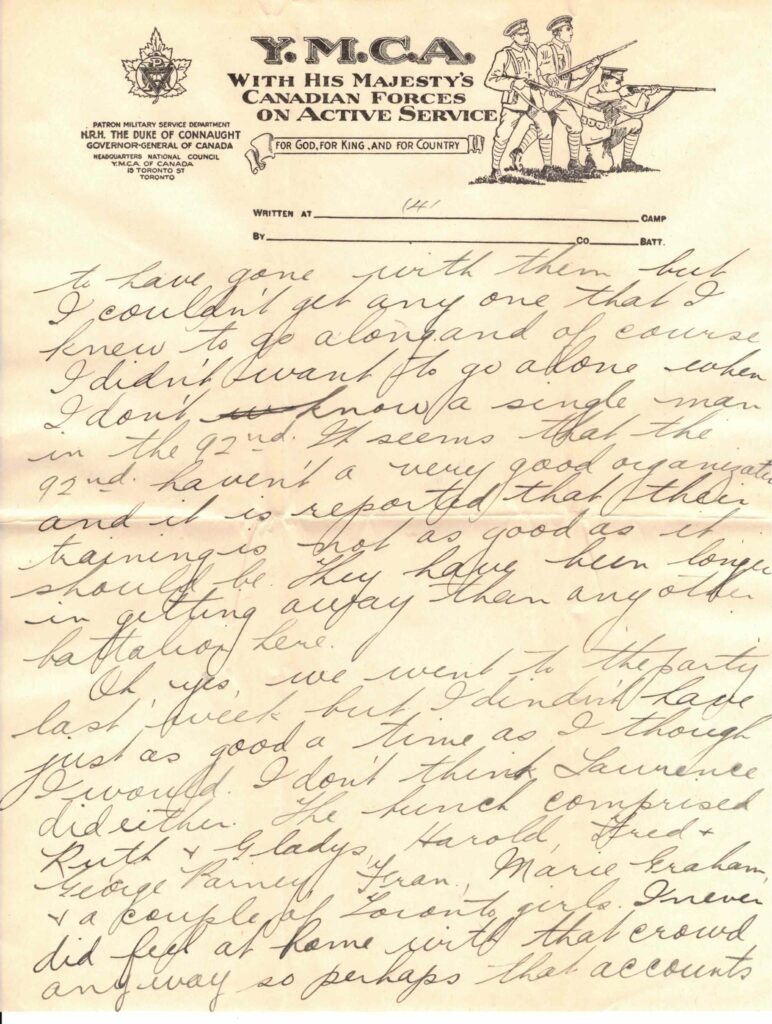 Y.M.C.A.
WITH HIS MAJESTY'S
CANADIAN FORCES
ON ACTIVE SERVICE
FOR GOD, FOR KING, AND FOR COUNTRY
PATRON MILITARY SERVICE DEPARTMENT
H.R.H. THE DUKE OF CONNAUGHT
GOVERNOR-GENERAL OF CANADA
HEADQUARTERS NATIONAL COUNCIL
Y.M.C.A. OF CANADA
15 TORONTO ST
TORONTO
WRITTEN AT CAMP
BY CO BATT.
to have gone with them but
I couldn't get any one that I
knew to go along and of course
I didn't want to go alone when
I don't know a single man
in the 92nd. It seems that the
92nd. haven't a very good organizatio
and it is reported that their
training is not as good as it
should be. They have been longer
in getting away than any other
battalion here.
Oh yes, we went to the party
last week but I dindn't have
just as good a time as I though
I would. I don't think Lawrence
did either. The bunch comprised
Ruth & Gladys, Harold, Fred &
George Parney, Fran, Marie Graham,
& a couple of Toronto girls. I never
did feel at home with that crowd
anyway so perhaps that accounts